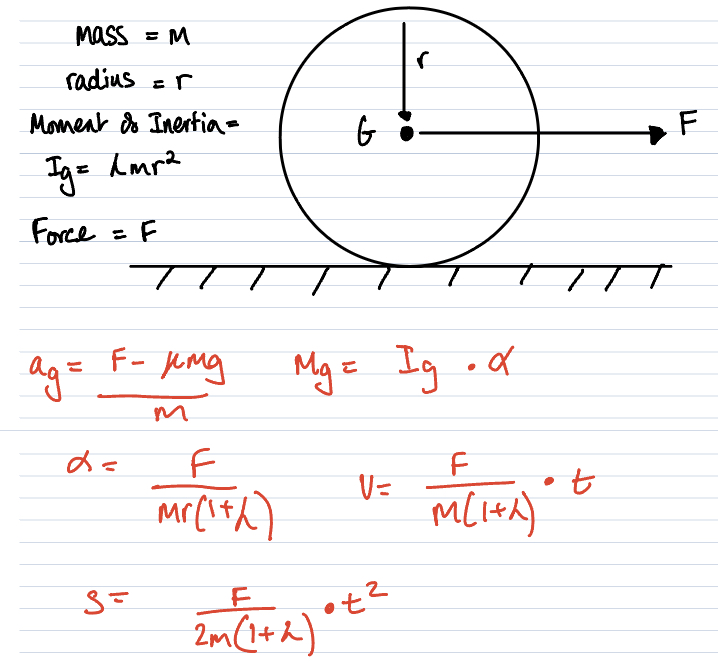 mass = M
radius = r
Moment of Inertia =
Ig = λmr²
Force = F
r
G
F
ag = F - μmg / m
Mg = Ig · α
α = F / Mr(1+λ)
v = F / M(1+λ) · t
s = F / 2m(1+λ) · t²